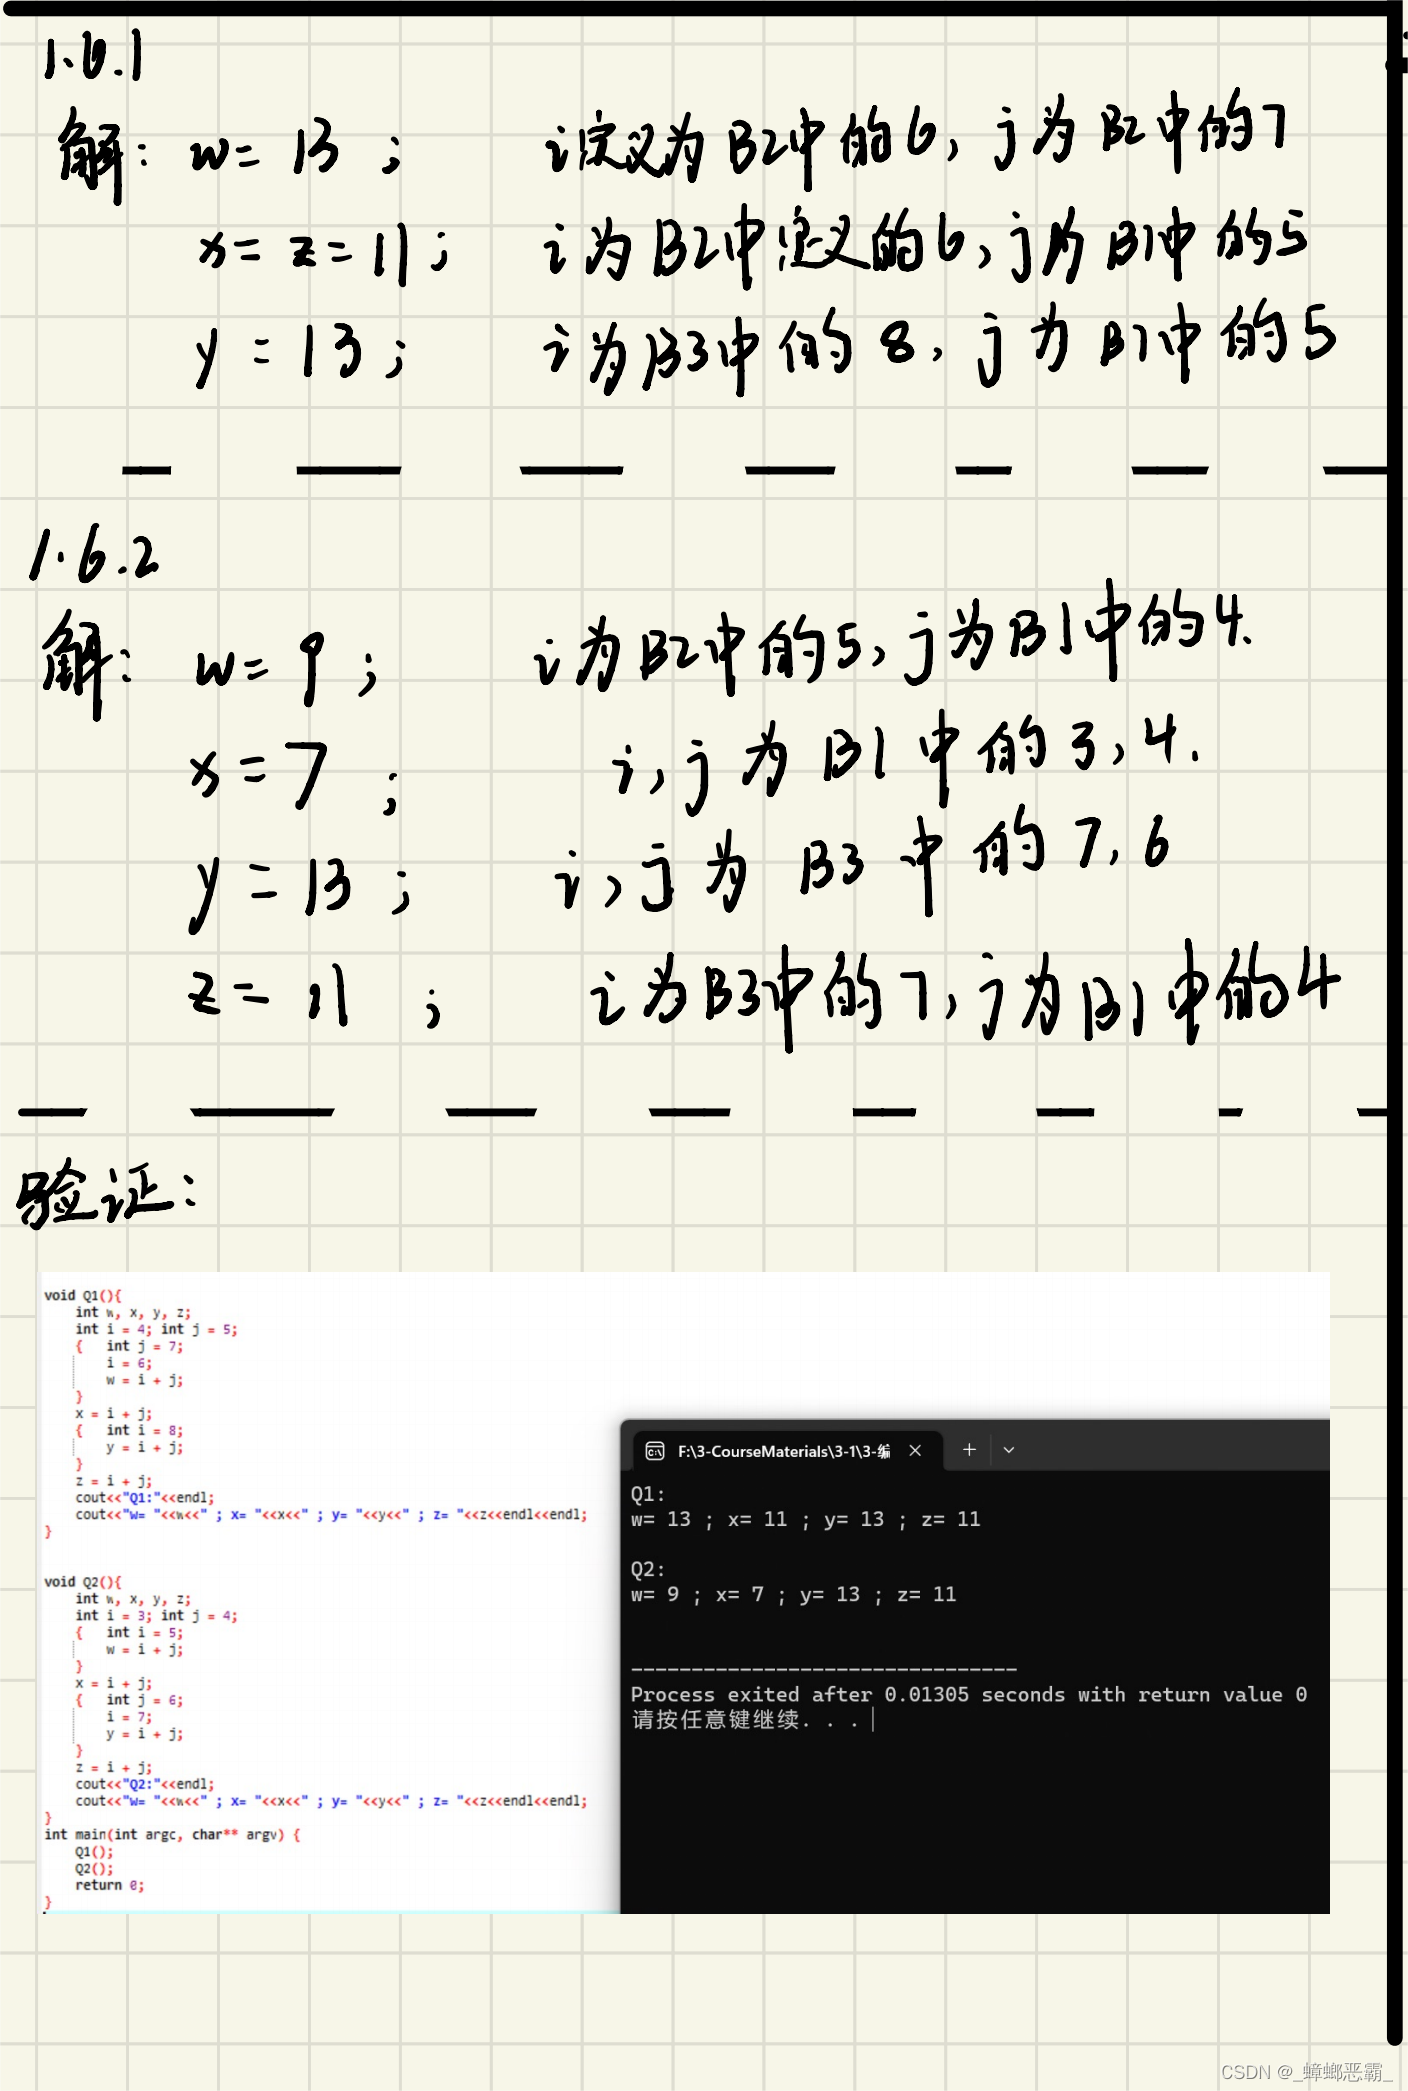 1.6.1
解: w= 13 ; i定义为B2中的6, j为B2中的7
x= z=11; i为B2中定义的6, j为B1中的5
y =13; i为B3中的8, j为B1中的5
1.6.2
解: w= 9 ; i为B2中的5, j为B1中的4.
x=7 ; i, j为B1中的3, 4.
y=13 ; i, j为B3中的7, 6
z= 11 ; i为B3中的7, j为B1中的4
验证:
void Q1(){
int w, x, y, z;
int i = 4; int j = 5;
{ int j = 7;
i = 6;
w = i + j;
}
x = i + j;
{ int i = 8;
y = i + j;
}
z = i + j;
cout<<"Q1:"<<endl;
cout<<"w= "<<w<<" ; x= "<<x<<" ; y= "<<y<<" ; z= "<<z<<endl<<endl;
}
void Q2(){
int w, x, y, z;
int i = 3; int j = 4;
{ int i = 5;
w = i + j;
}
x = i + j;
{ int j = 6;
i = 7;
y = i + j;
}
z = i + j;
cout<<"Q2:"<<endl;
cout<<"w= "<<w<<" ; x= "<<x<<" ; y= "<<y<<" ; z= "<<z<<endl<<endl;
}
int main(int argc, char** argv) {
Q1();
Q2();
return 0;
}
F:\3-CourseMaterials\3-1\3-编
Q1:
w= 13 ; x= 11 ; y= 13 ; z= 11
Q2:
w= 9 ; x= 7 ; y= 13 ; z= 11
--------------------------------
Process exited after 0.01305 seconds with return value 0
请按任意键继续. . .
CSDN @_蟑螂恶霸_